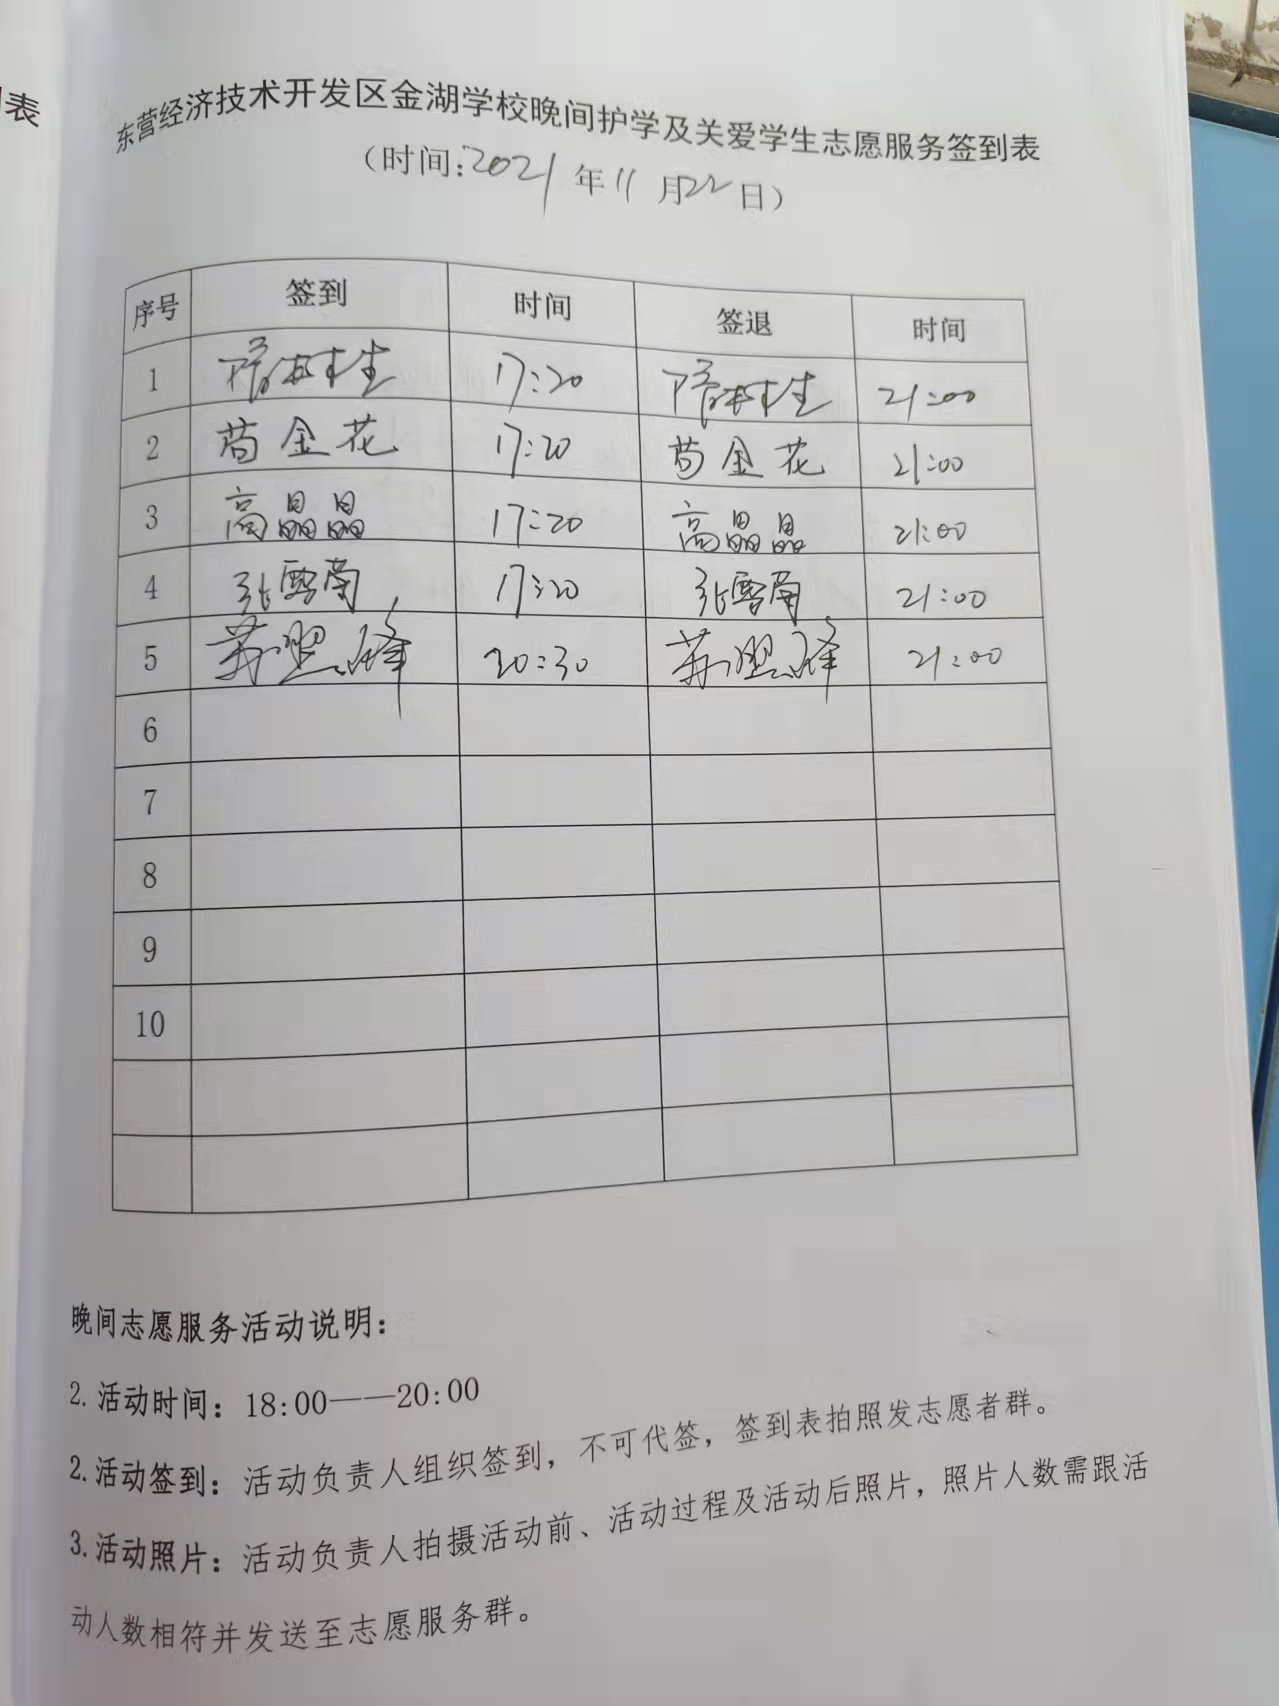 表
东营经济技术开发区金湖学校晚间护学及关爱学生志愿服务签到表
（时间:2021年11月22日）
序号 签到 时间 签退 时间
1 17:20 21:00
2 苟金花 17:20 苟金花 21:00
3 高晶晶 17:20 高晶晶 21:00
4 张雪南 17:20 张雪南 21:00
5 20:30 21:00
6
7
8
9
10
晚间志愿服务活动说明：
2.活动时间：18:00——20:00
2.活动签到：活动负责人组织签到，不可代签，签到表拍照发志愿者群。
3.活动照片：活动负责人拍摄活动前、活动过程及活动后照片，照片人数需跟活
动人数相符并发送至志愿服务群。